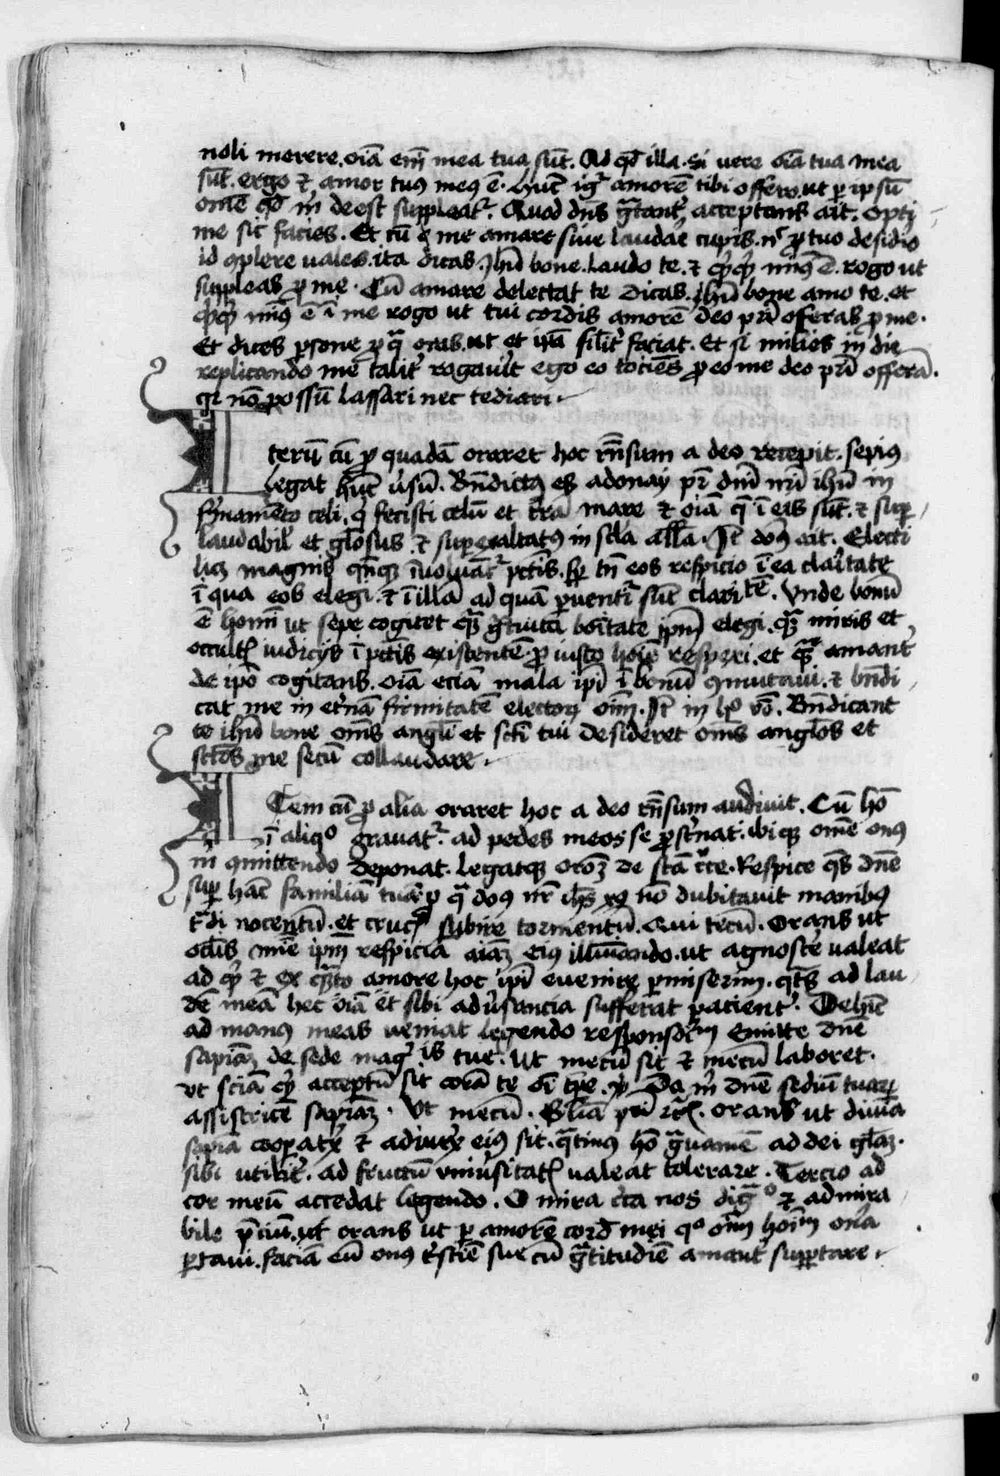 noli merere. oīa em̄ mea tua sūt. Ad qd̄ illa. Si vere oīa tua mea
sūt. ergo et amor tuꝰ meꝰ ē. Hūc igr̄ amorē tibi offero. ut per ip̄sū
om̄e qd̄ m̄ deest suppleat᷑. Quod dn̄s gͣtant᷑ acceptans ait. Opti
me sic facies. Et cū me amare sive laudare cupis. n̄ ꝓ tuo desiderio
id ꝯplere vales. ita dicas. Jhū bone. laudo te. et qͥcqͥd minꝰ ē. rogo ut
suppleas ꝓ me. Cū amare delectat te dicas. Jhū bone amo te. et
qͥcqͥd minꝰ ē ī me rogo ut tui cordis amorē deo pr̄i offeras ꝓ me.
Et dices ꝑsone ꝓ qͣ oras. ut et ip̄a silīt faciat. Et si milies in die
replicando me talit᷑ rogavit᷑ ego eo tociēs ꝓ eo me deo pr̄i offerā.
qr nō possū lassari nec tediari
Iterū cū ꝓ quadā oraret hoc rn̄sum a deo recepit. Sepiꝰ
legat hūc v̄sū. Bn̄dictꝰ es adonay pr̄ dn̄i nr̄i ihū in
firmamēto celi. qͥ fecisti celū et t̄rā mare et oīa q̄ ī eis sūt. et sup̱
laudabil᷑ et gl̄osus. et suꝑexaltatꝰ in scl̄a all̄a. Itē dn̄s ait. Electi
licꝫ magnis qn̄qꝫ īvolvant᷑ pctīs. sp̱ tn̄ eos respicio ī ea claritate
ī qua eos elegi. et ī illa ad quā ꝑventi᷑ sūt claritatē. Unde bonū
ē homī ut sepe cogitet qͣ gͣtuita bonitate ip̄m elegi. qͣ miris et
occultꝭ iudicijs ī pctīs existentē ꝓ iusto hoīe respexi. et qͣ amant᷑
de ip̄o cogitans. oīa eciā mala ip̄i ī bonū ꝯmutavi. et bn̄di
cat me in et᷑nā firmitatē electorꝫ oīm. Itē in hͦ v̄o. Bn̄dicant
te ihū bone om̄s angl̄i et sct̄i tui desideret om̄s angl̄os et
sct̄os me secū collaudare
Item cū ꝓ alia oraret hoc a deo rn̄sum audivit. Cū hō
ī aliqͦ gravat᷑. ad pedes meos se ꝓst᷑nat. ibiqꝫ om̄e onꝰ
m̄ ꝯmittendo deponat. legatqꝫ or̄oꝫ de sctā c᷑ce. Respice qs̄ dn̄e
sup̱ hāc familiā tuā ꝓ qͣ dn̄s nr̄ ihs xp̄s nō dubitavit manibꝰ
tͣdi nocentū. et crucꝭ subire tormentū. Qui tecū. Orans ut
oclīs mīe ip̄m respiciā aīaꝫ eiꝰ illuīando. ut agnosce᷑ valeat
ad qͥd et ex qͣnto amore hoc ip̄i evenire ꝑmiserim. qͣts ad lau
dē meā hec oīa et sibi adv᷑sancia sufferat pacient᷑. Dehīc
ad manꝰ meas veniat legendo responsor̄m Emitte dn̄e
sapīaꝫ de sede magͥtis tue. Ut mecū sit et mecū laboret.
Ut sciā qͥd acceptū sit corā te oī tp̄e. ꝟ. Da m̄ dn̄e sediū tuarꝫ
assistricē sapīaꝫ. Ut mecū. Gl̄ia pr̄i rc̄. Orans ut divīa
sapīa cooperatrix et adiutrix eiꝰ sit. qͣtinꝰ hō gͣvamē ad dei gl̄aꝫ.
sibi utilit᷑. ad fructū univ᷑sitatꝭ valeat tolerare. Tercio ad
cor meū accedat legendo. O mira c᷑ca nos dignͦ et admira
bile p̄ciū. ut orans ut ꝑ amorē cordꝭ mei qͦ oīm hoīm on᷑a
portavi. faciā eū onꝰ trīsticie sue cū gͣtitudīe amant᷑ supportare